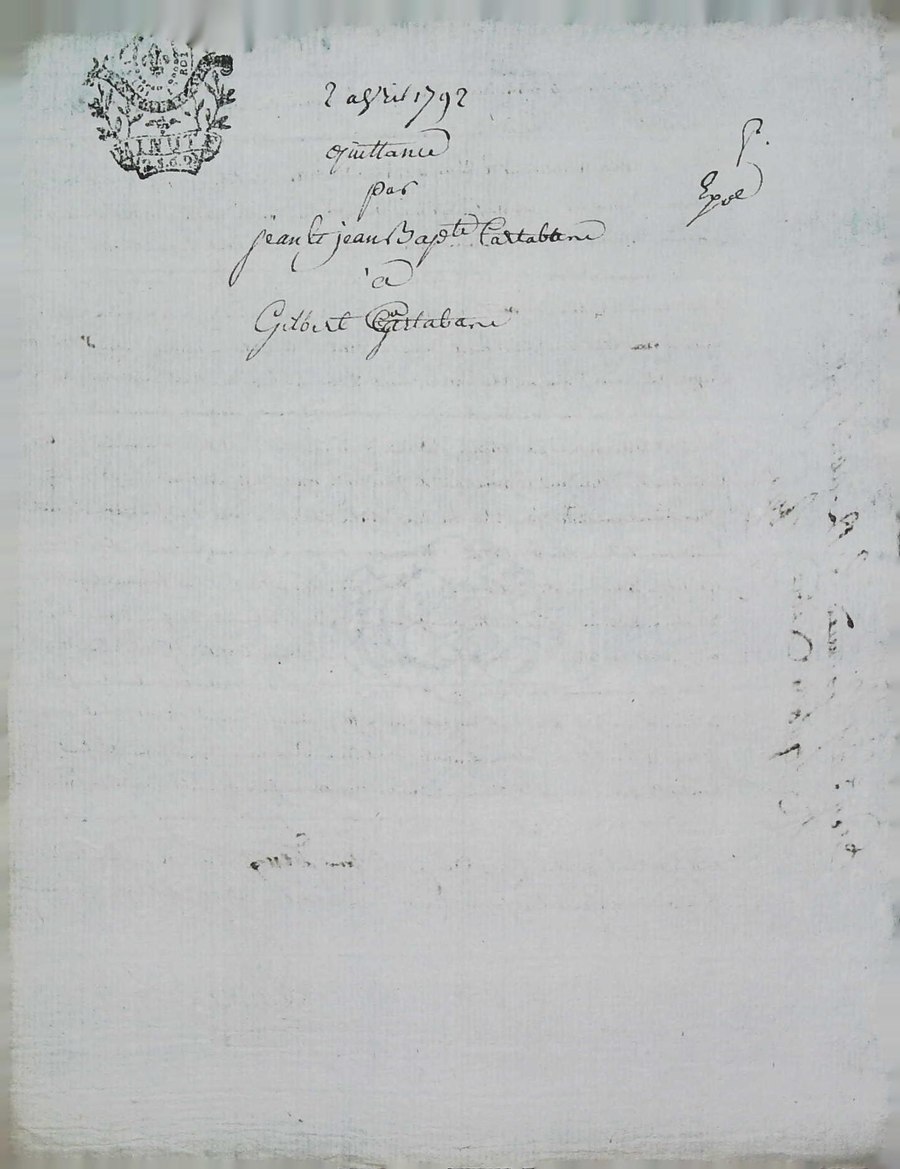 2 avril 1792
quittance
par
jean & jean Bap.te Cartabane
a
Gilbert Cartabane
Expé